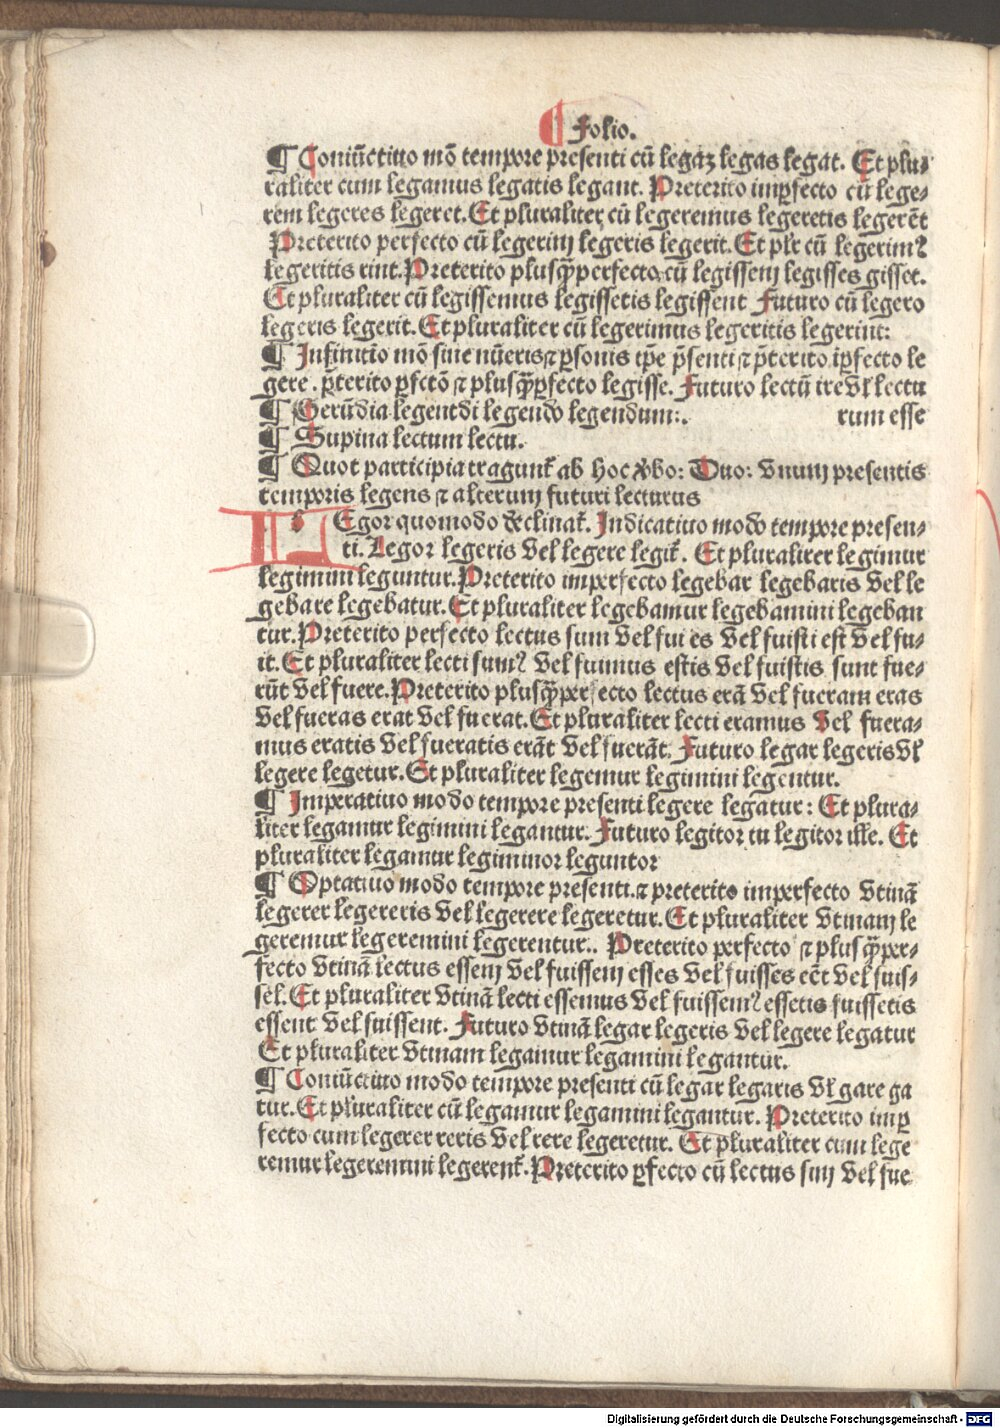 ¶ Folio.
¶ Coniūctiuo mō tempore presenti cū legaz legas legat. Et plu-
raliter cum legamus legatis legant. Preterito imꝑfecto cū lege-
rem legeres legeret. Et pluraliter cū legeremus legeretis legerēt
Preterito perfecto cū legerim legeris legerit. Et plr cū legerimꝰ
legeritis rint. Preterito plusꝙ̄perfecto cū legissem legisses gisset.
Et pluraliter cū legissemus legissetis legissent Futuro cū legero
legeris legerit. Et pluraliter cū legerimus legeritis legerint:
¶ Infinitio mō sine nūeris ⁊ ꝑsonis tꝑe p̄senti ⁊ p̄terito iꝑfecto le
gere. p̄terito ꝑfctō ⁊ plusꝙ̄ꝑfecto legisse. Futuro lectū ire vl lectu
¶ Gerūdia legentdi legendo legendum:. rum esse
¶ Supina lectum lectu.
¶ Quot participia tragunt̄ ab hoc ꝟbo: Duo: vnum presentis
temporis legens ⁊ alterum futuri lecturus
L Egor quomodo declinat̄. Indicatiuo modo tempore presen-
ti. Legor legeris vel legere legit̄. Et pluraliter legimur
legimini leguntur. Preterito imperfecto legebar legebaris vel le
gebare legebatur. Et pluraliter legebamur legebamini legeban
tur. Preterito perfecto lectus sum vel fui es vel fuisti est vel fu-
it. Et pluraliter lecti sumꝰ vel fuimus estis vel fuistis sunt fue-
rūt vel fuere. Preterito plusꝙ̄perfecto lectus erā vel fueram eras
vel fueras erat vel fuerat. Et pluraliter lecti eramus vel fuera-
mus eratis vel fueratis erāt vel fuerāt. Futuro legar legeris vl
legere legetur. Et pluraliter legemur legimini legentur.
¶ Imperatiuo modo tempore presenti legere legatur: Et plura-
liter legamur legimini legantur. Futuro legitor tu legitor ille. Et
pluraliter legamur legiminor leguntor
¶ Optatiuo modo tempore presenti. ⁊ preterito imperfecto vtinā
legerer legereris vel legerere legeretur. Et pluraliter vtinam le
geremur legeremini legerentur.. Preterito perfecto ⁊ plusꝙ̄per-
fecto vtinā lectus essem vel fuissem esses vel fuisses eēt vel fuis-
set. Et pluraliter vtinā lecti essemus vel fuissemꝰ essetis fuissetis
essent vel fuissent. Futuro vtinā legar legeris vel legere legatur
Et pluraliter vtinam legamur legamini legantur.
¶ Coniūctiuo modo tempore presenti cū legar legaris vl gare ga
tur. Et pluraliter cū legamur legamini legantur. Preterito imꝑ
fecto cum legerer reris vel rere legeretur. Et pluraliter cum lege
remur legeremini legerent̄. Preterito ꝑfecto cū lectus sim vel fue
Digitalisierung gefördert durch die Deutsche Forschungsgemeinschaft - DFG